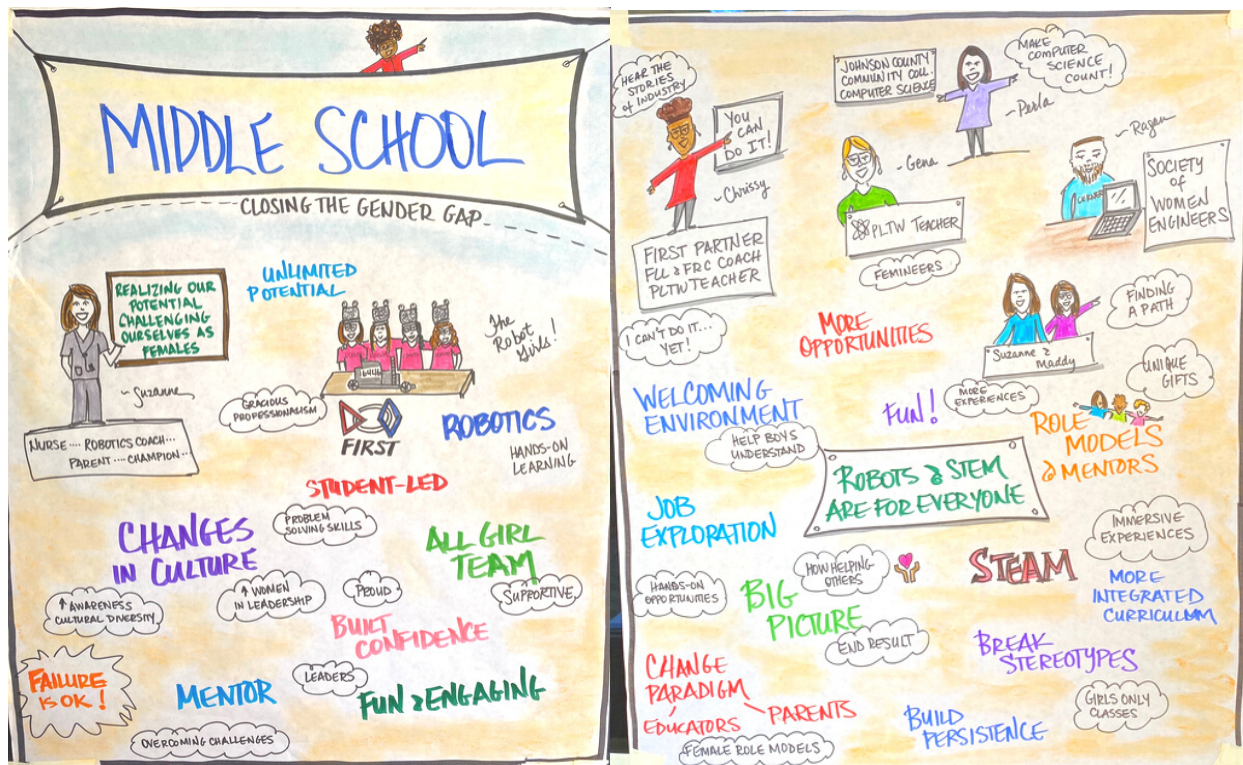 MIDDLE SCHOOL
CLOSING THE GENDER GAP
REALIZING OUR
POTENTIAL
CHALLENGING
OURSELVES AS
FEMALES
~ Suzanne
NURSE .... ROBOTICS COACH...
PARENT .... CHAMPION...
UNLIMITED
POTENTIAL
The
Robot
Girls!
6424
GRACIOUS
PROFESSIONALISM
FIRST
ROBOTICS
HANDS-ON
LEARNING
STUDENT-LED
PROBLEM
SOLVING SKILLS
CHANGES
IN CULTURE
ALL GIRL
TEAM
↑ AWARENESS
CULTURAL DIVERSITY
↑ WOMEN
IN LEADERSHIP
PROUD
SUPPORTIVE
BUILT
CONFIDENCE
FAILURE
IS OK!
MENTOR
LEADERS
FUN & ENGAGING
OVERCOMING CHALLENGES
HEAR THE
STORIES
of INDUSTRY
YOU
CAN
DO IT!
~ Chrissy
FIRST PARTNER
FLL & FRC COACH
PLTW TEACHER
JOHNSON COUNTY
COMMUNITY COLL.
COMPUTER SCIENCE
MAKE
COMPUTER
SCIENCE
COUNT!
~ Perla
- Gena
PLTW TEACHER
FEMINEERS
~ Ragan
CERNER
SOCIETY
of
WOMEN
ENGINEERS
I CAN'T DO IT...
YET!
MORE
OPPORTUNITIES
Suzanne &
Maddy
FINDING
A PATH
UNIQUE
GIFTS
WELCOMING
ENVIRONMENT
FUN!
MORE
EXPERIENCES
ROLE
MODELS
& MENTORS
HELP BOYS
UNDERSTAND
ROBOTS & STEM
ARE FOR EVERYONE
JOB
EXPLORATION
IMMERSIVE
EXPERIENCES
HOW HELPING
OTHERS
STEAM
HANDS-ON
OPPORTUNITIES
BIG
PICTURE
MORE
INTEGRATED
CURRICULUM
END RESULT
BREAK
STEREOTYPES
CHANGE
PARADIGM
EDUCATORS
PARENTS
GIRLS ONLY
CLASSES
BUILD
PERSISTENCE
FEMALE ROLE MODELS